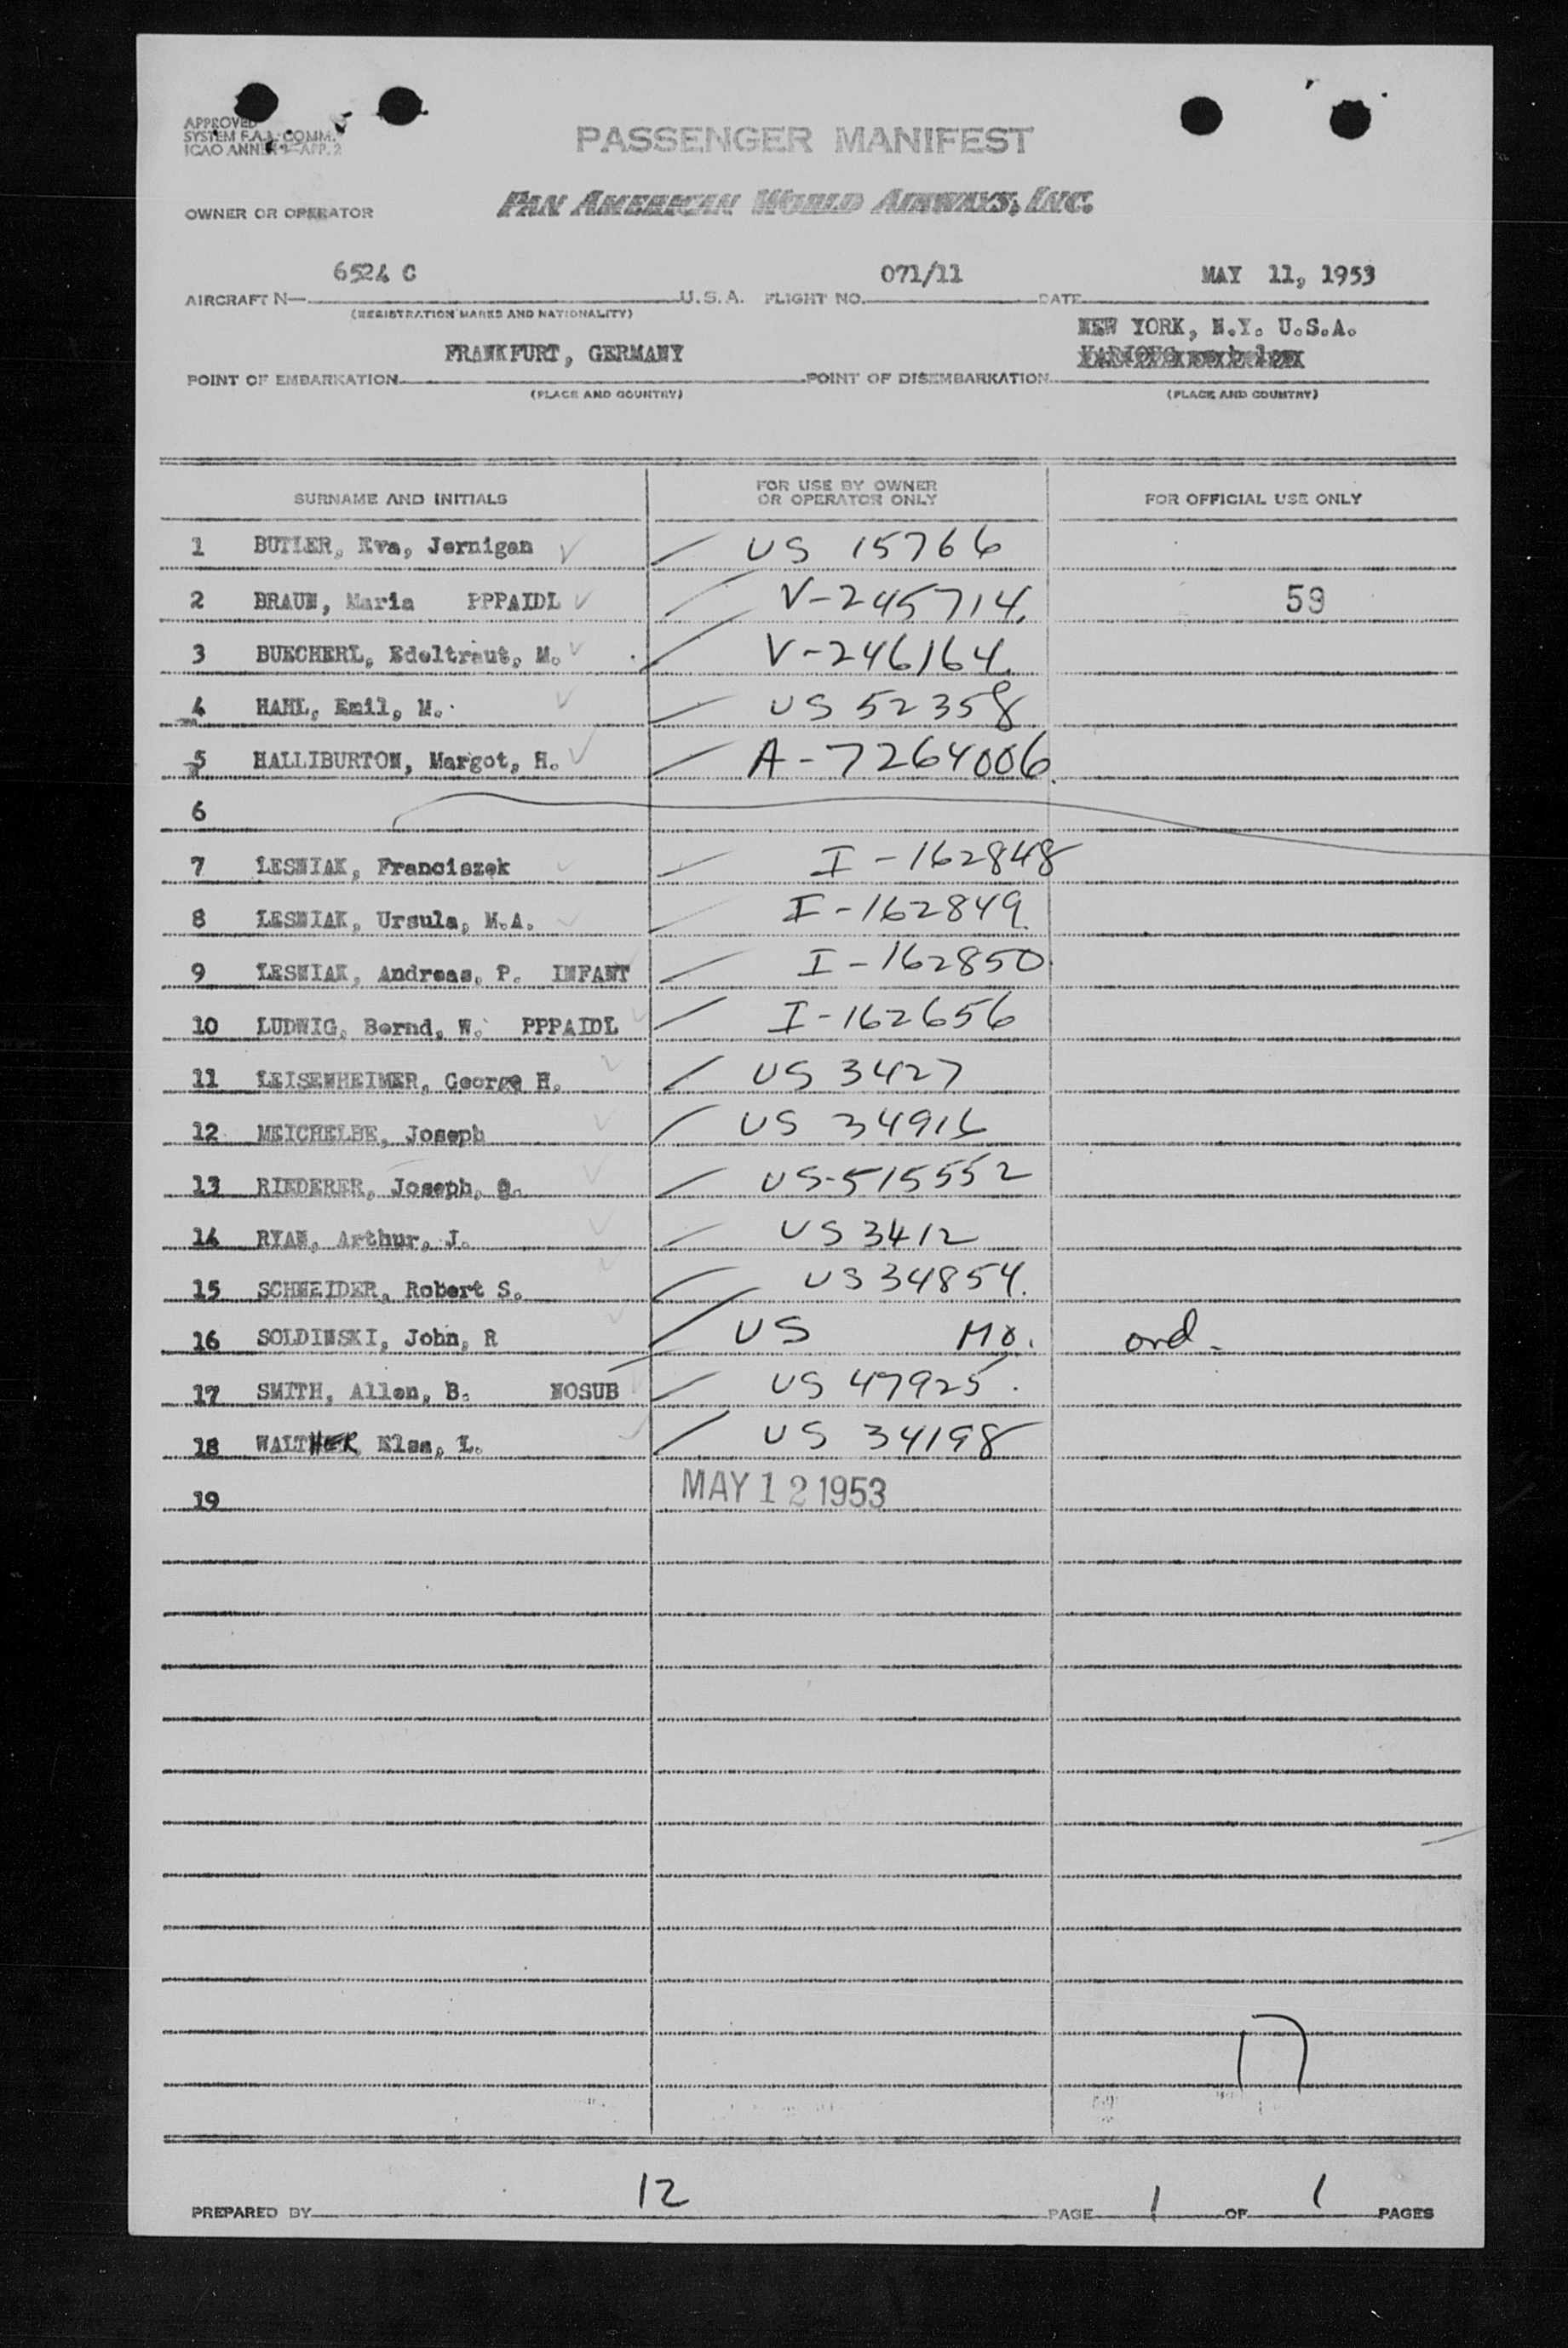 APPROVED
SYSTEM F.A.L. COMM.
ICAO ANNEX 9-APP. 2
PASSENGER MANIFEST
OWNER OR OPERATOR PAN AMERICAN WORLD AIRWAYS, INC.
6524 C 071/11 MAY 11, 1953
AIRCRAFT N— U.S.A. FLIGHT NO. DATE
(REGISTRATION MARKS AND NATIONALITY)
NEW YORK, N.Y. U.S.A.
FRANKFURT, GERMANY
POINT OF EMBARKATION POINT OF DISEMBARKATION
(PLACE AND COUNTRY) (PLACE AND COUNTRY)
SURNAME AND INITIALS FOR USE BY OWNER OR OPERATOR ONLY FOR OFFICIAL USE ONLY
1 BUTLER, Eva, Jernigan US 15766
2 BRAUN, Maria PPPAIDL V-245714. 59
3 BUECHERL, Edeltraut, M. V-246164.
4 HAHL, Emil, M. US 52358
5 HALLIBURTON, Margot, H. A-7264006.
6
7 LESNIAK, Franciszek I-162848
8 LESNIAK, Ursula, M.A. I-162849.
9 LESNIAK, Andreas, P. INFANT I-162850.
10 LUDWIG, Bernd, W. PPPAIDL I-162656
11 LEISENHEIMER, George H. US 3427
12 MEICHELBE, Joseph US 34916
13 RIEDERER, Joseph, US-515552
14 RYAN, Arthur, J. US 3412
15 SCHNEIDER, Robert S. US 34854.
16 SOLDINSKI, John, R US Mo. ord.
17 SMITH, Allen, B. NOSUB US 47925.
18 WALTHER Elsa, L. US 34198
19 MAY 12 1953
17
12
PREPARED BY PAGE 1 OF 1 PAGES